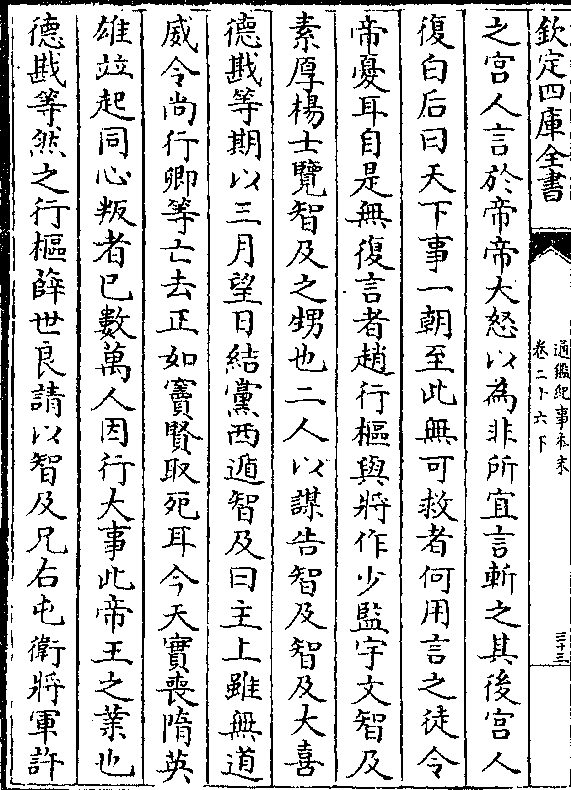 欽定四庫全書
通鑑紀事本末
卷二十六下
三十三
之宮人言於帝帝大怒以為非所宜言斬之其後宮人
復白后曰天下事一朝至此無可救者何用言之徒令
帝憂耳自是無復言者趙行樞與將作少監宇文智及
素厚楊士覽智及之甥也二人以謀告智及智及大喜
德戡等期以三月望日結黨西遁智及曰主上雖無道
威令尚行卿等亡去正如竇賢取死耳今天實喪隋英
雄竝起同心叛者已數萬人因行大事此帝王之業也
德戡等然之行樞薛世良請以智及兄右屯衛將軍許